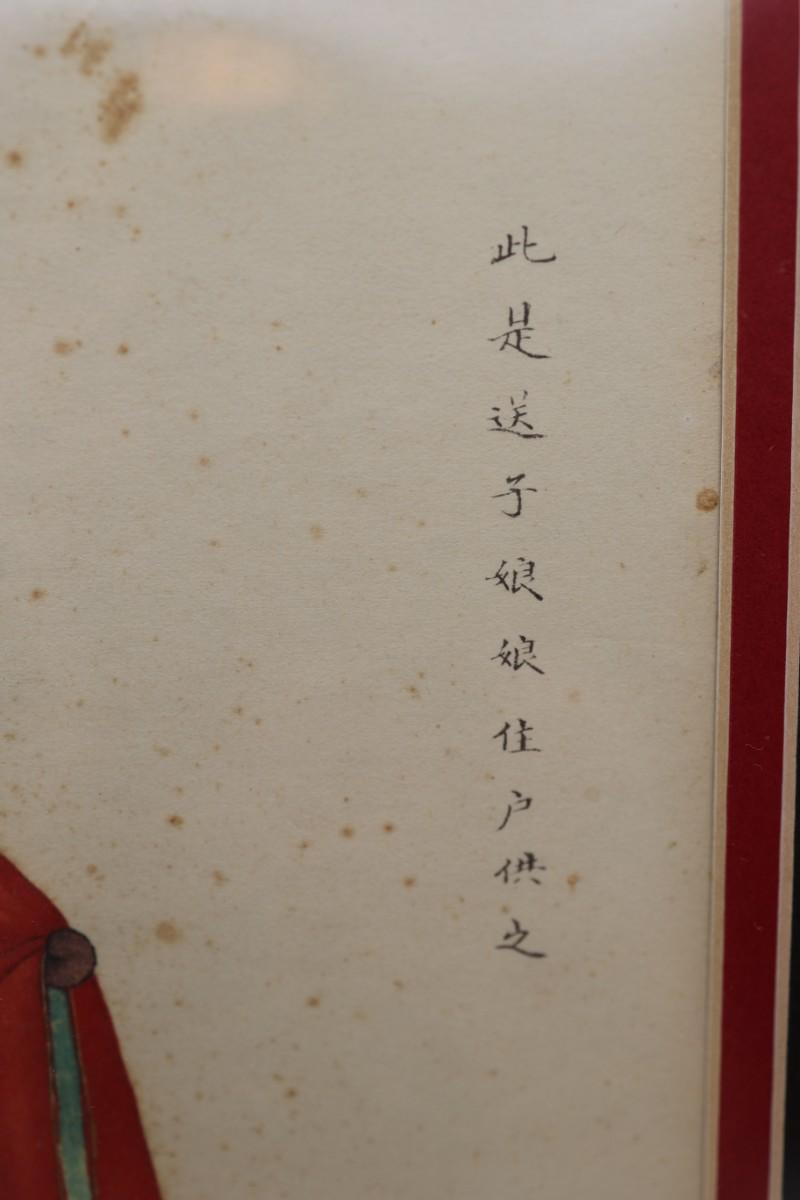 此是送子娘娘住户供之